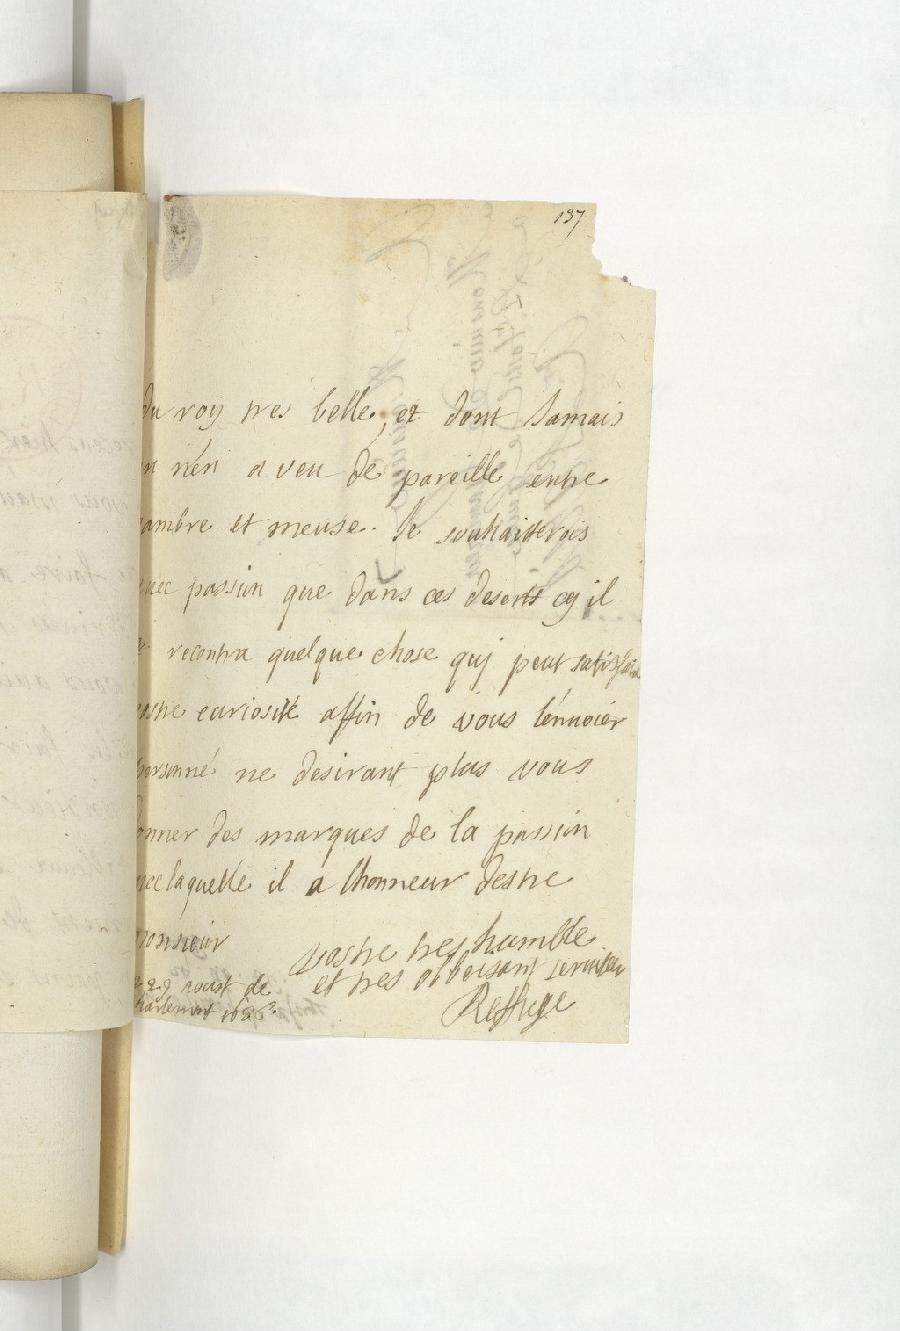 137
du roy tres belle, et dont Jamais
n n'en a veu de pareille entre
ambre et meuse. Je souhaiterois
avec passion que dans ces desertt cy il
recontra quelque chose quj peut satisfaire
vostre curiosité affin de vous l'enuoier
personne ne desirant plus vous
donner des marques de la passion
avec laquelle il a lhonneur destre
monsieur
vostre tres humble
et tres obboisant seruiteur
Reffuge
29 aoust de
charlemont